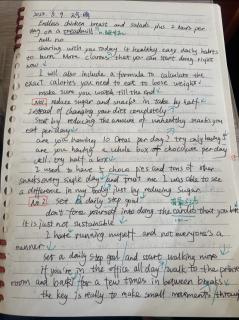 2023. 8. 9
Endless chicken breast and salads plus 2 hours per
day on a treadmill
null no.
sharing with you today 10 healthy easy daily habits
to burn More classes that you can start doing right
now
I will also include a formula to calculate the
exact calories you need to eat to loose weight.
make sure you watch till the end
No.1 reduce sugar and snacks in take by half
instead of changing your diet completely
Star by reducing the amount of unhealthy snacks you
eat per day
are you having 10 Oreos per day? try only having
are you having a whole box of chocolate per day
well. try half a box
I used to have 5 choux pies and tons of other
snacks every single day and trust me I was able to see
a difference in my body just by reducing sugar.
No.2 Set a daily step goal
don't force yourself into doing the cardio that you hate
it is just not sustainable
I hate running myself and not everyone's a
runner
set a daily step goal and start walking more
if you're in the office all day walk to the printer
room and back for a few times in between breaks
the key is really to make small movements through